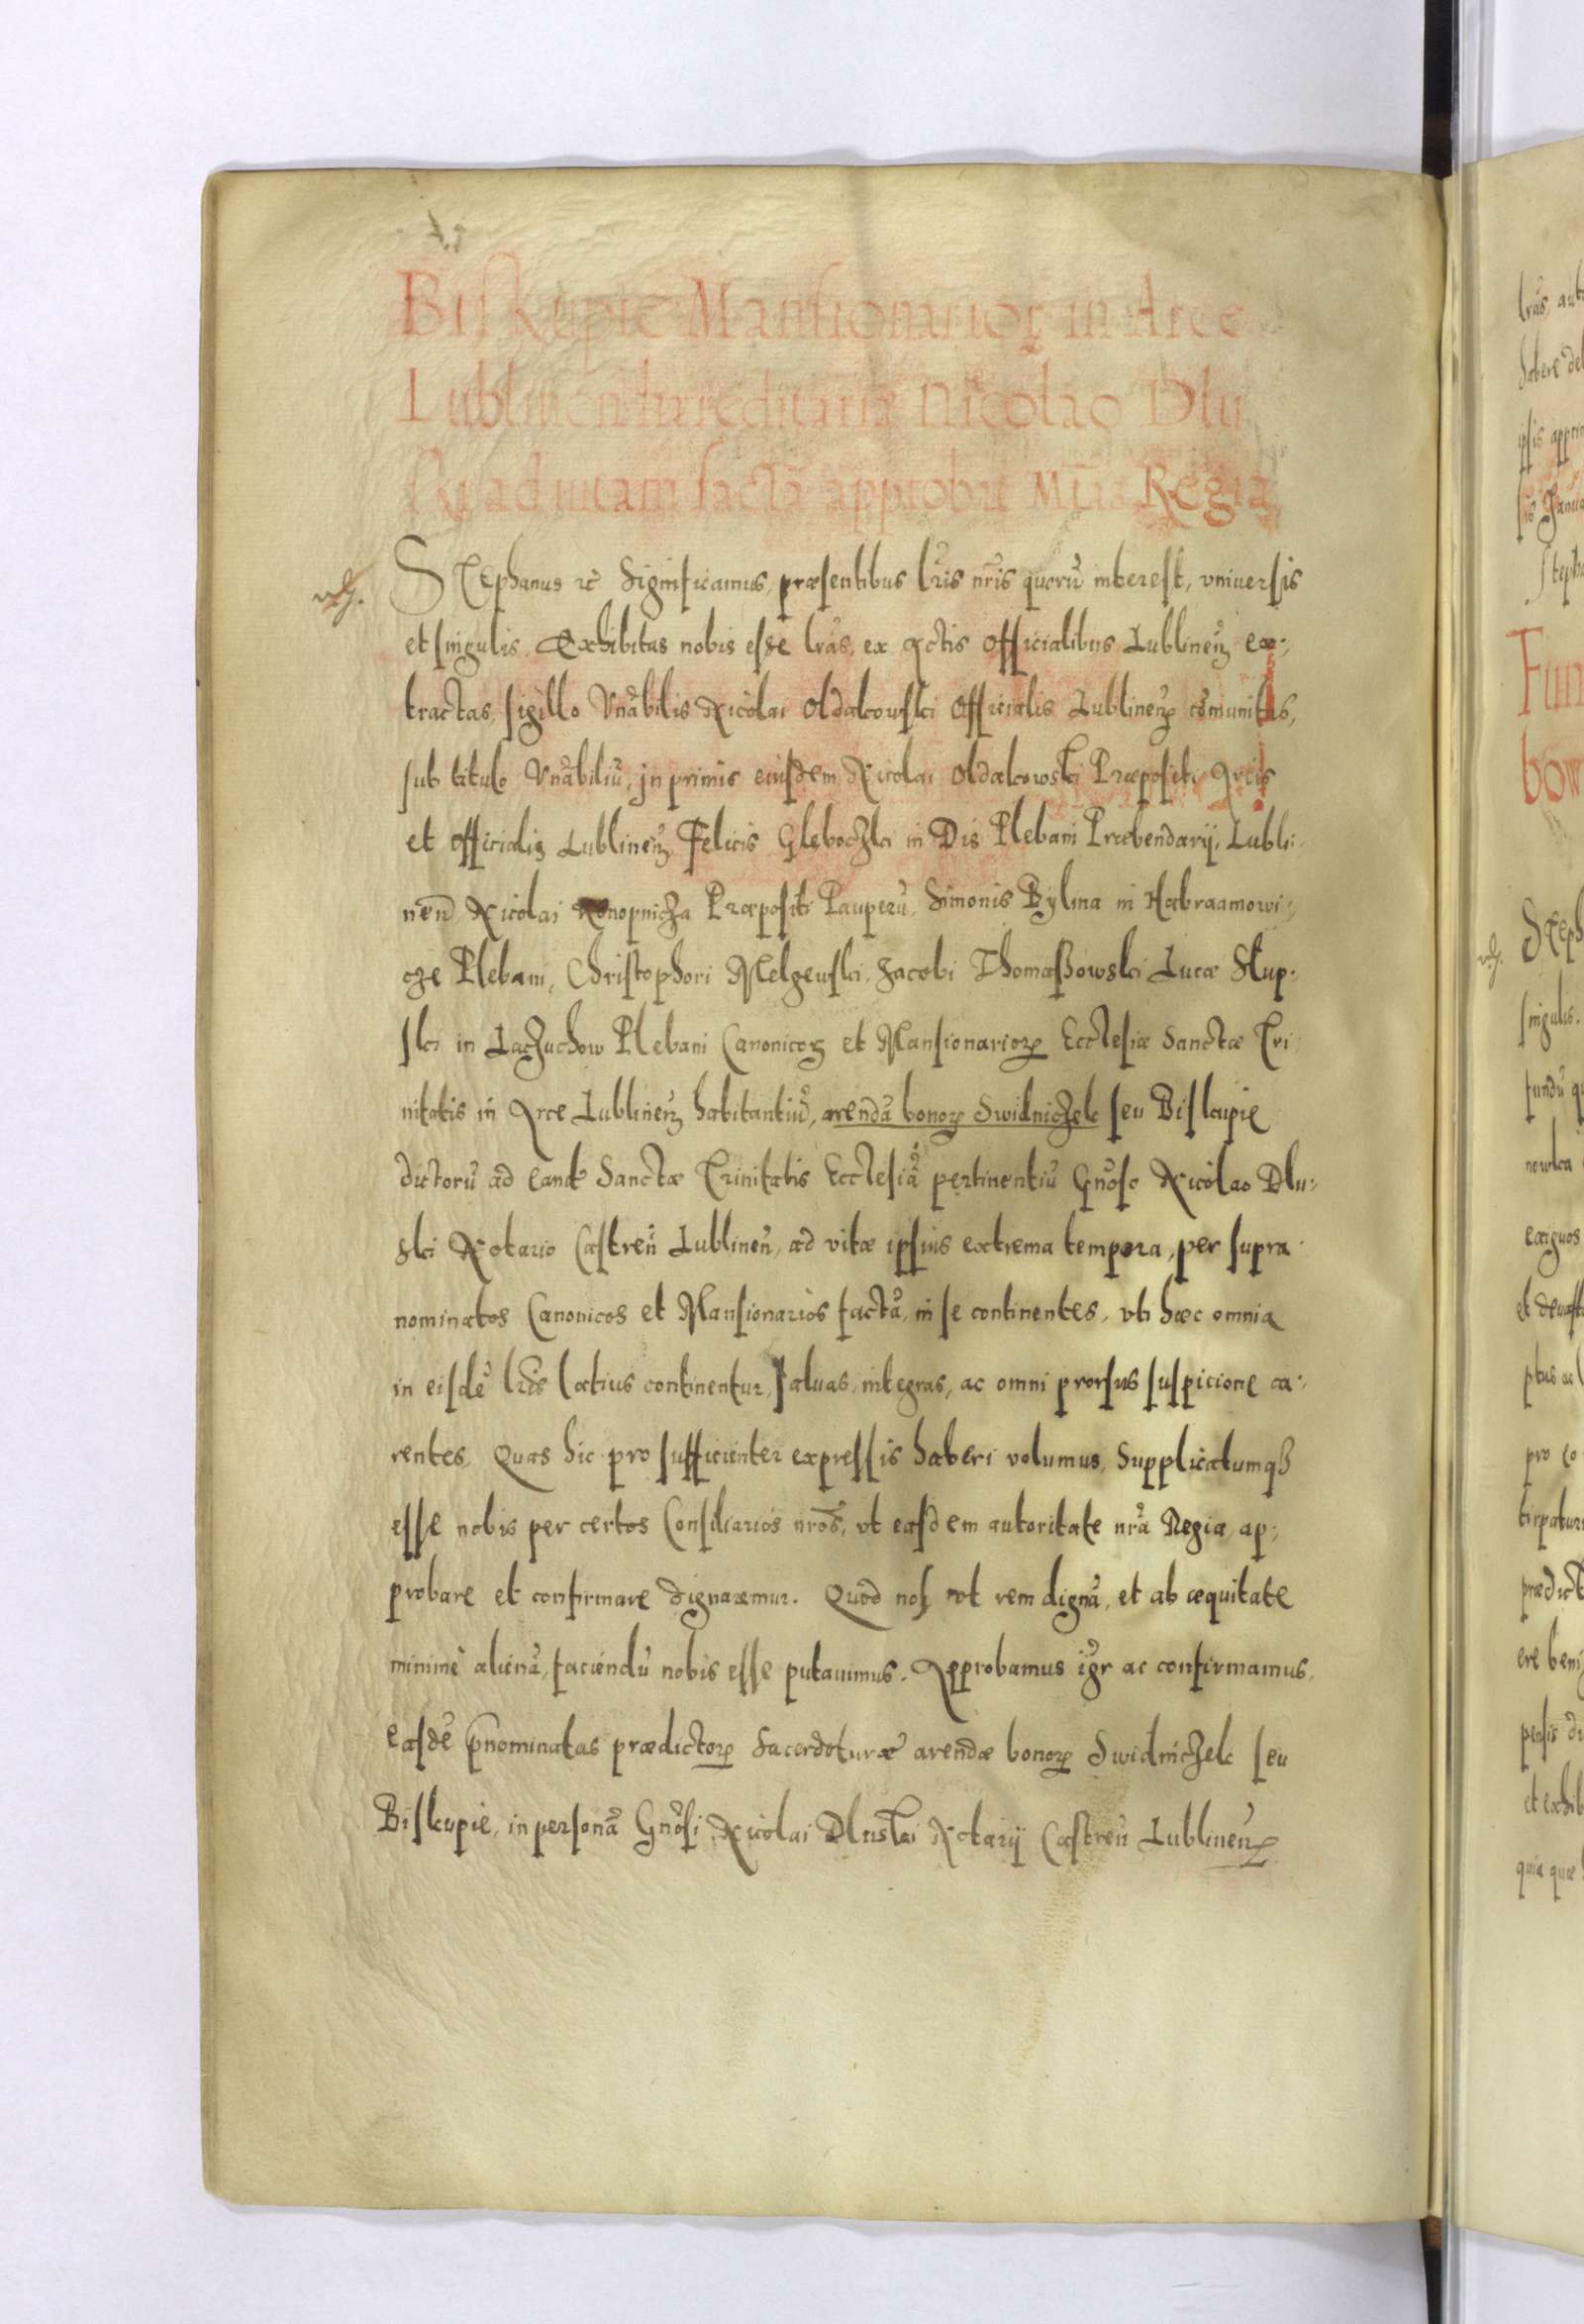 Biskupie Mansionarioꝝ in Arce
Lublinen hæreditaria Nicolao Dlu
ski ad vitam factã approbat Mtas Regia
vdg.
STephanus ꝛc Significamus præsentibus lris nris quorũ interest, vniuersis
et singulis. Exhibitas nobis esse lras, ex Actis Officialibus Lublineñ ex:
tractas, sigillo Vnãbilis Nicolai Oldakowski Officialis Lublineñ cõmunitas,
sub titulo Vnãbiliũ, jn primis eiusdem Nicolai Oldakowski Præpositi, Arcis
et Officialis Lublineñ, Felicis Gleboczki in Dis Plebani Præbendarij, Lubli:
neñ Nicolai Konopnicza Præpositi Pauperũ, Simonis Bylina in Habraamowi:
cze Plebani, Christophori Melgewski, Jacobi Thomaßowski Lucæ Slup:
ski in Laczuchow Plebani Canonicoꝝ et Mansionarioꝝ Ecclesiæ Sanctæ Tri
nitatis in Arce Lublineñ habitantiũ, arendã bonoꝝ Swidniczek seu Biskupie
dictorũ ad eand Sanctæ Trinitatis Ecclesiã pertinentiũ Gnõso Nicolao Dlu:
ski Notario Castreñ Lublineñ, ad vitæ ipsius extrema tempora, per supra
nominatos Canonicos et Mansionarios factã, in se continentes, vti hæc omnia
in eisdẽ lris latius continentur, saluas, integras, ac omni prorsus suspicione ca:
rentes. Quas hic pro sufficienter expressis haberi volumus, Supplicatumqꝫ
esse nobis per certos Consiliarios nros, vt easdem autoritate nrã Regia, ap:
probare et confirmare dignaremur. Quod nos vt rem dignã, et ab æquitate
minimè alienã, faciendũ nobis esse putauimus. Approbamus igr ac confirmamus,
easdẽ pnominatas prædictoꝝ arendæ bonoꝝ Swidniczek seu
Biskupie, in personã Gnõsi Nicolai Dluski Notarij Castreñ Lublineñ